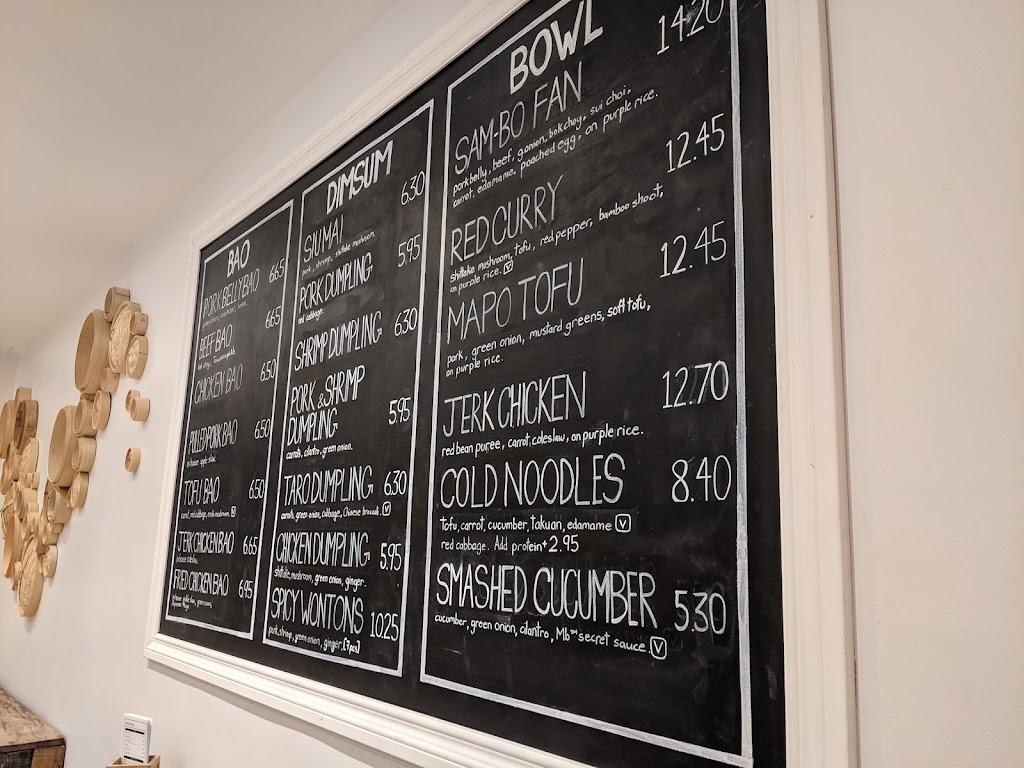 BAO
PORK BELLY BAO 6.65
BEEF BAO 6.65
CHICKEN BAO 6.50
PULLED PORK BAO 6.50
TOFU BAO 6.50
V
JERK CHICKEN BAO 6.65
FRIED CHICKEN BAO 6.95
DIMSUM
SIU MAI 6.30
pork, shrimp, shiitake mushroom.
PORK DUMPLING 5.95
red cabbage.
SHRIMP DUMPLING 6.30
PORK & SHRIMP
DUMPLING 5.95
carrots, cilantro, green onion.
TARO DUMPLING 6.30
carrots, green onion, cabbage, Chinese broccoli. V
CHICKEN DUMPLING 5.95
shiitake, mushroom, green onion, ginger.
SPICY WONTONS 10.25
pork, shrimp, green onion, ginger. (7pcs)
BOWL
SAM-BO FAN 14.20
pork belly, beef, g.onion, bok choy, sui choi,
carrot, edamame, poached egg, on purple rice.
RED CURRY 12.45
shiitake mushroom, tofu, red pepper, bamboo shoot,
on purple rice. V
MAPO TOFU 12.45
pork, green onion, mustard greens, soft tofu,
on purple rice.
JERK CHICKEN 12.70
red bean puree, carrot, coleslaw, on purple rice.
COLD NOODLES 8.40
tofu, carrot, cucumber, takuan, edamame V
red cabbage. Add protein +2.95
SMASHED CUCUMBER 5.30
cucumber, green onion, cilantro, Mb™ secret sauce. V